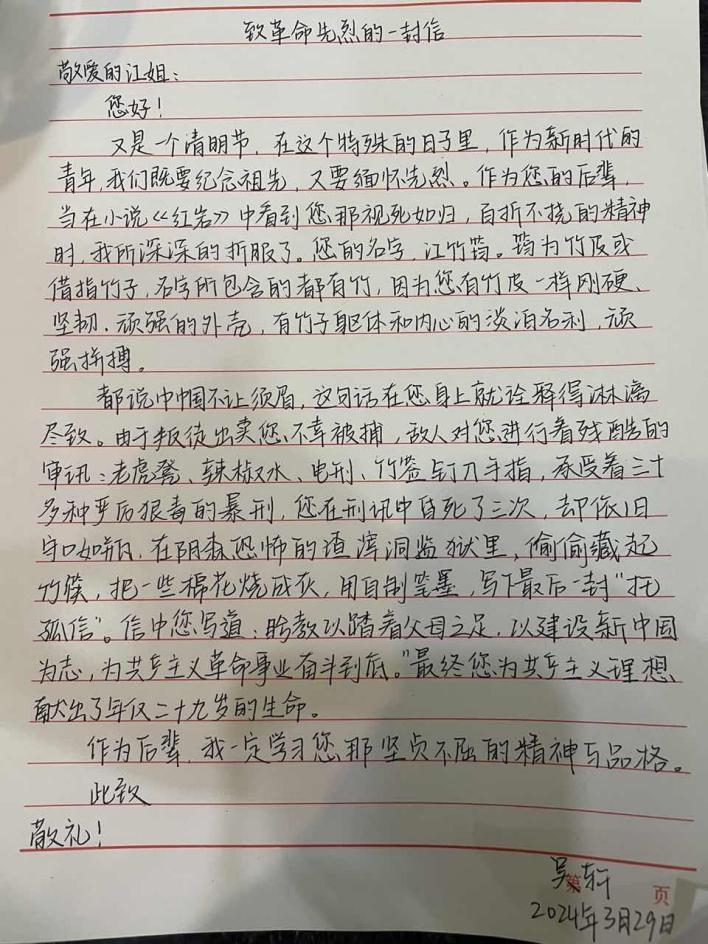 致革命先烈的一封信
敬爱的江姐：
您好！
又是一个清明节，在这个特殊的日子里，作为新时代的
青年，我们既要纪念祖先，又要缅怀先烈。作为您的后辈，
当在小说《红岩》中看到您那视死如归，百折不挠的精神
时，我所深深的折服了。您的名字，江竹筠。筠为竹皮或
借指竹子，名字所包含的都有竹，因为您有竹皮一样刚硬、
坚韧、顽强的外壳，有竹子躯体和内心的淡泊名利，顽
强拼搏。
都说巾帼不让须眉，这句话在您身上就诠释得淋漓
尽致。由于叛徒出卖您不幸被捕，敌人对您进行着残酷的
审讯：老虎凳、辣椒水、电刑、竹签钉入手指，承受着三十
多种严厉狠毒的暴刑，您在刑讯中昏死了三次，却依旧
守口如瓶，在阴森恐怖的渣滓洞监狱里，偷偷藏起
竹筷，把一些棉花烧成灰，用自制笔墨，写下最后一封“托
孤信”。信中您写道：盼教以踏着父母之足，以建设新中国
为志，为共产主义革命事业奋斗到底。”最终您为共产主义理想、
献出了年仅二十九岁的生命。
作为后辈，我一定学习您那坚贞不屈的精神与品格。
此致
敬礼！
吴轩
第 页
2024年3月29日